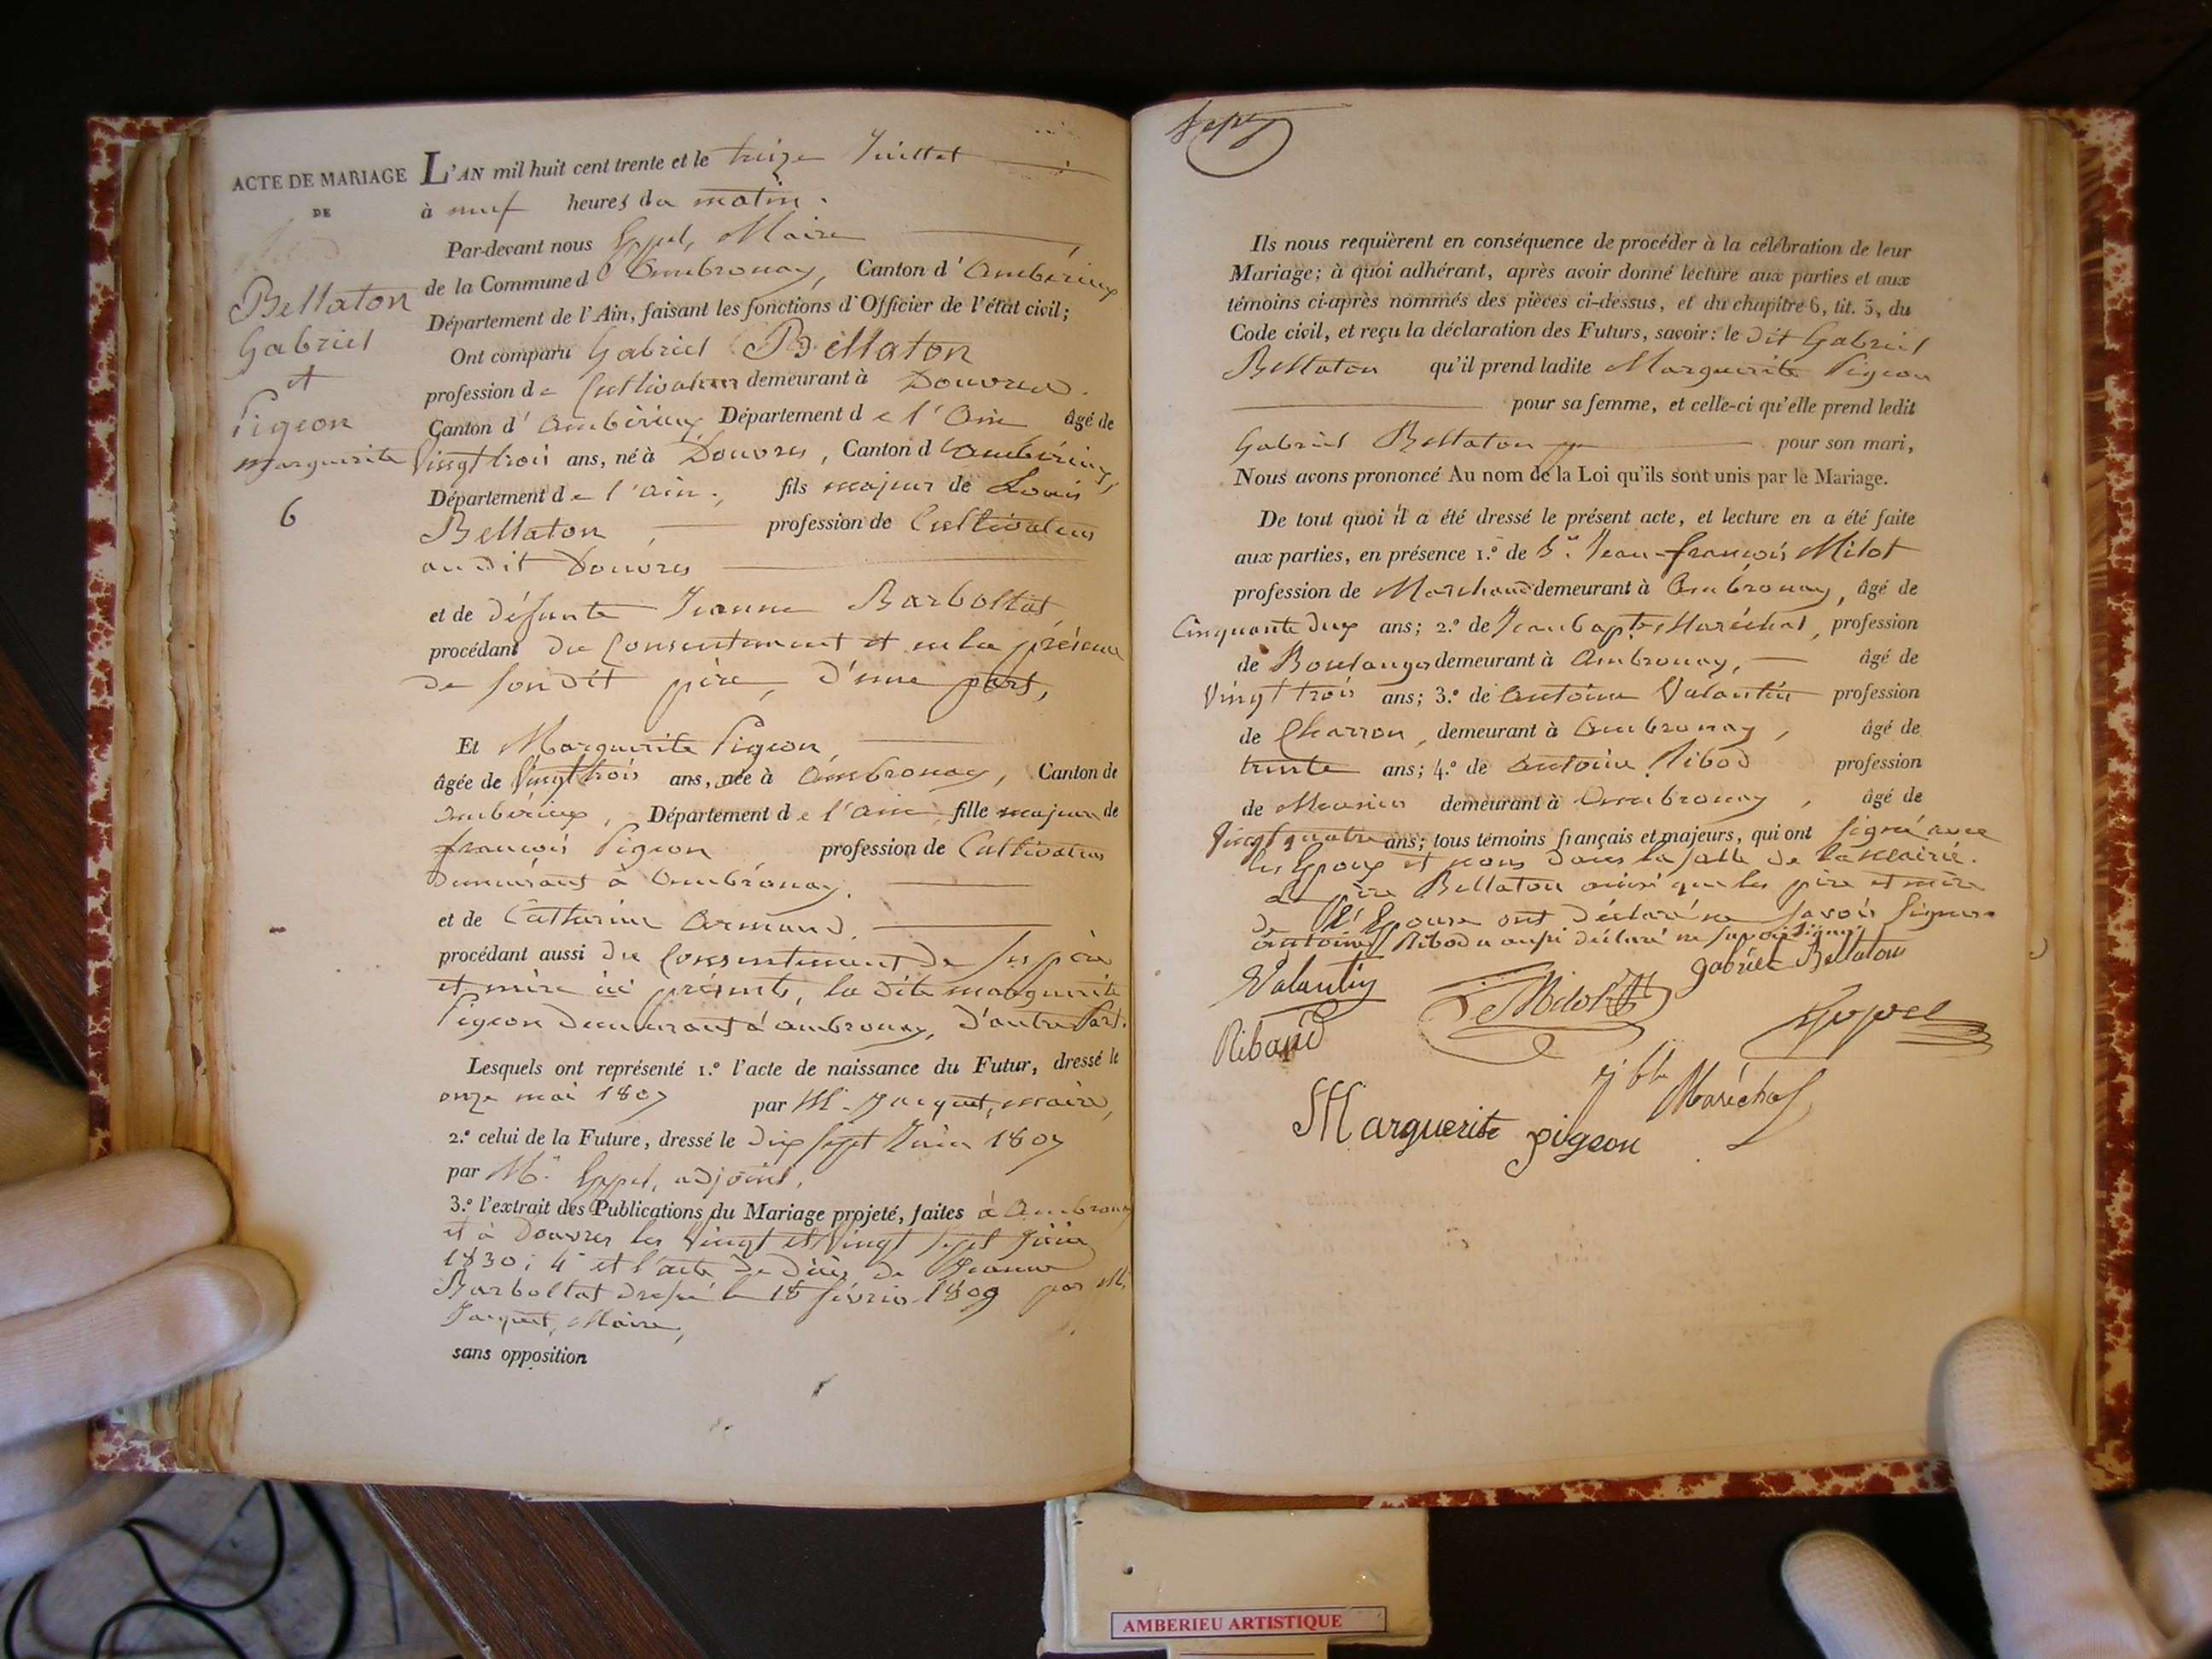 ACTE DE MARIAGE
DE
Bellaton
Gabriel
et
Pigeon
marguerite
6
L'AN mil huit cent trente et le treize Juillet
à neuf heures du matin.
Par-devant nous Eppel, Maire
de la Commune d'Ambronay, Canton d'Ambérieux
Département de l'Ain, faisant les fonctions d'Officier de l'état civil;
Ont comparu Gabriel Bellaton
profession de Cultivateur demeurant à Douvres.
Canton d'Ambérieux Département de l'Ain âgé de
Vingt trois ans, né à Douvres, Canton d'Ambérieux,
Département de l'ain, fils majeur de Louis
Bellaton, profession de Cultivateur
au dit Douvres
et de défunte Jeanne Barboltat
procédant du Consentement et en la présence
de son dit père, d'une part,
Et Marguerite Pigeon,
âgée de Vingt trois ans, née à Ambronay, Canton de
Ambérieux, Département de l'ain, fille majeure de
françois Pigeon profession de Cultivateur
demeurant à Ambronay.
et de Catherine Armand,
procédant aussi du Consentement de ses père
et mère ici présents, la dite marguerite
Pigeon demeurant à ambronay, d'autre Part.
Lesquels ont représenté 1.º l'acte de naissance du Futur, dressé le
onze mai 1807 par M. Jacquet, maire,
2.º celui de la Future, dressé le dix sept Juin 1807
par Mr. Eppel, adjoint,
3.º l'extrait des Publications du Mariage projeté, faites à Ambronay
et à Douvres les Vingt et Vingt sept Juin
1830; 4º et l'acte de décès de Jeanne
Barboltat dressé le 18 février 1809 par M.
Jacquet, Maire,
sans opposition
Sept
Ils nous requièrent en conséquence de procéder à la célébration de leur
Mariage; à quoi adhérant, après avoir donné lecture aux parties et aux
témoins ci-après nommés des pièces ci-dessus, et du chapitre 6, tit. 5, du
Code civil, et reçu la déclaration des Futurs, savoir: le dit Gabriel
Bellaton qu'il prend ladite Marguerite Pigeon
pour sa femme, et celle-ci qu'elle prend ledit
Gabriel Bellaton pour son mari,
Nous avons prononcé Au nom de la Loi qu'ils sont unis par le Mariage.
De tout quoi il a été dressé le présent acte, et lecture en a été faite
aux parties, en présence 1.º de Sr. Jean-françois Milot
profession de Marchand demeurant à Ambronay, âgé de
Cinquante deux ans; 2.º de Jean bapte Maréchal, profession
de Boulanger demeurant à Ambronay, âgé de
Vingt trois ans; 3.º de Antoine Valantin profession
de Charron, demeurant à Ambronay, âgé de
trente ans; 4.º de Antoine Ribod profession
de Meunier demeurant à Ambronay, âgé de
Vingt quatre ans; tous témoins français et majeurs, qui ont Signé avec
les Epoux et nous dans la salle de la mairie.
Le père Bellaton ainsi que les père et mère
de l'Epouse ont déclaré ne savoir Signer.
antoine Ribod a aussi déclaré ne savoir signer.
Valantin
gabriel Bellaton
Milot
Eppel
Ribaud
j bte Maréchal
Marguerite pigeon
AMBERIEU ARTISTIQUE